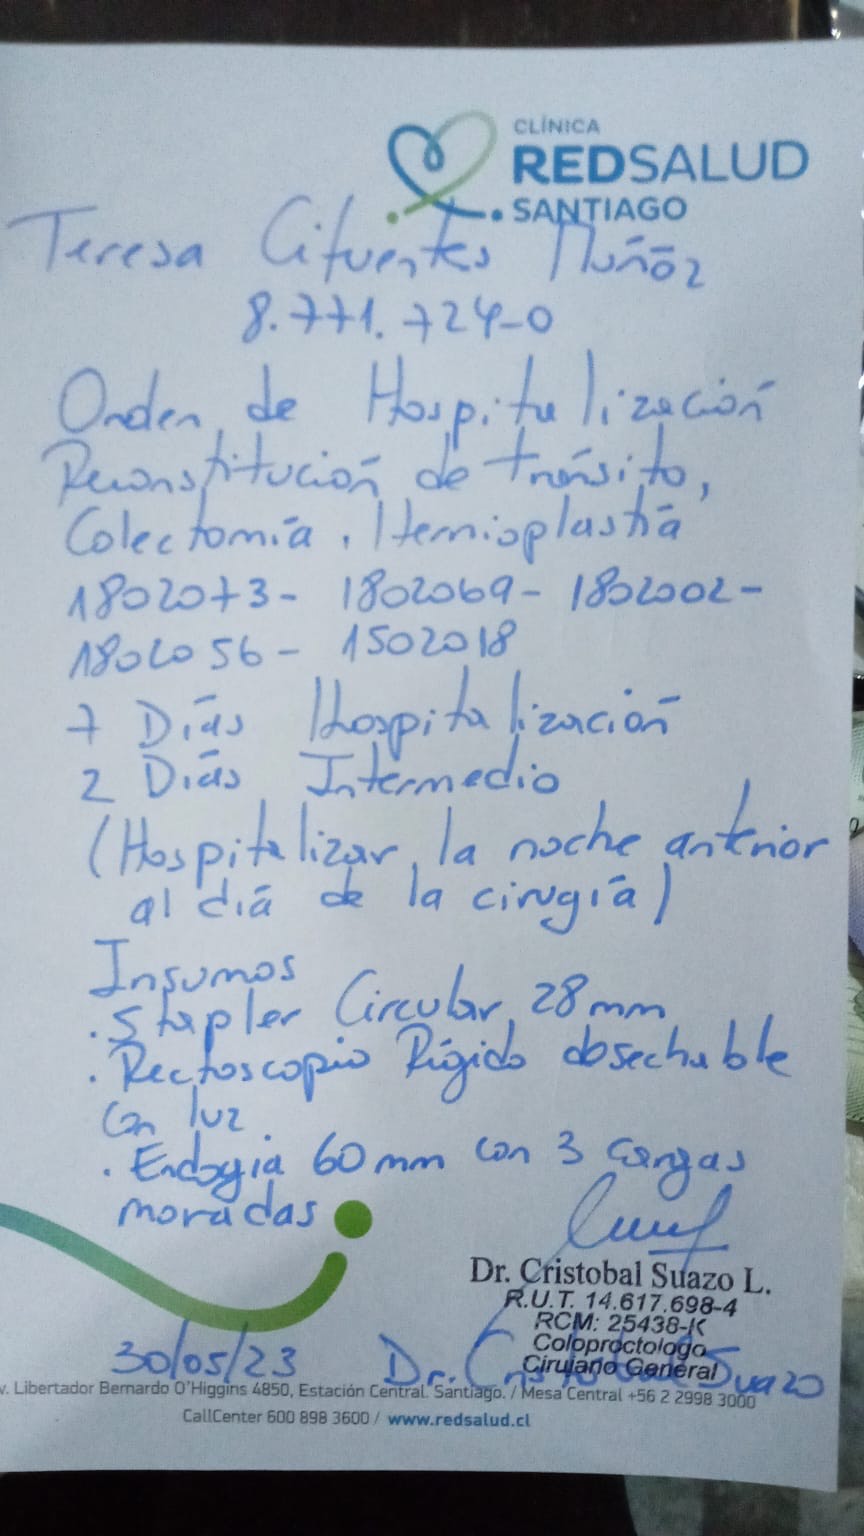 CLÍNICA
REDSALUD
SANTIAGO
Teresa Cifuentes Muñoz
8.771.724-0
Orden de Hospitalización
Reconstitución de tránsito,
Colectomía, Hernioplastía
1802073- 1802069- 1802002-
1802056- 1502018
7 Días Hospitalización
2 Días Intermedio
(Hospitalizar la noche anterior
al día de la cirugía)
Insumos
. Stapler Circular 28 mm
. Rectoscopio Rígido desechable
con luz
. Endogia 60 mm con 3 cargas
moradas
Dr. Cristobal Suazo L.
R.U.T. 14.617.698-4
RCM: 25438-K
Coloproctologo
Cirujano General
30/05/23 Dr. Cristobal Suazo
v. Libertador Bernardo O'Higgins 4850, Estación Central. Santiago. / Mesa Central +56 2 2998 3000
CallCenter 600 898 3600 / www.redsalud.cl